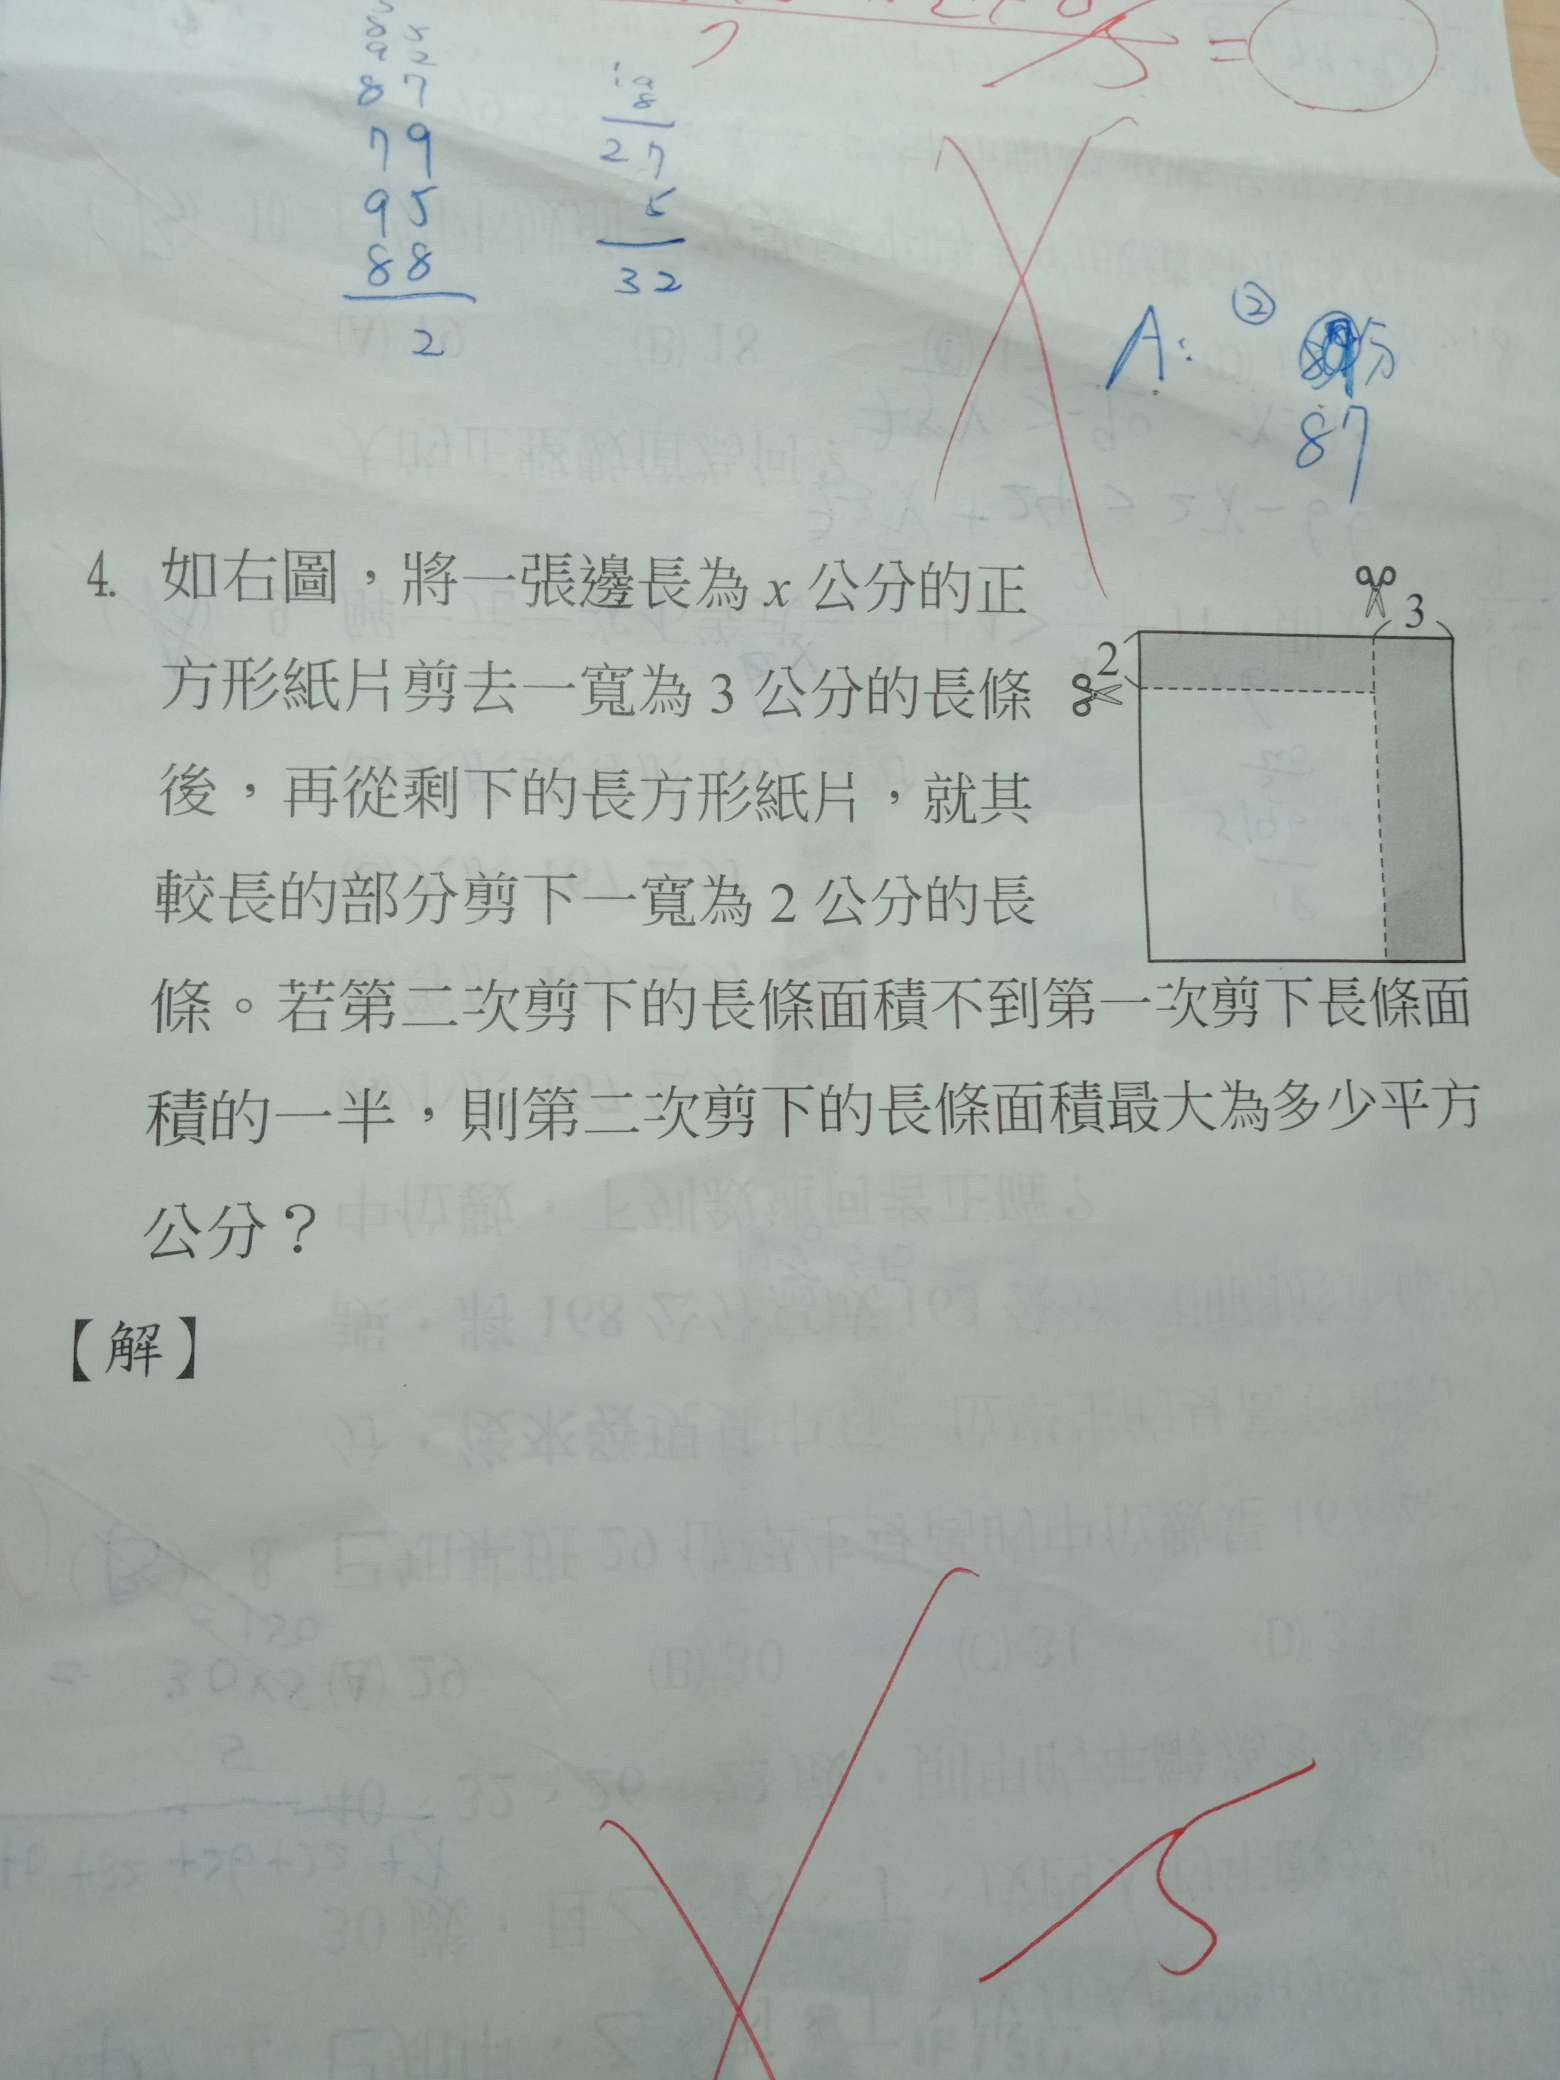 87
79
95
88
2
27
5
32
A: ②
87
4. 如右圖，將一張邊長為 x 公分的正
方形紙片剪去一寬為 3 公分的長條
後，再從剩下的長方形紙片，就其
較長的部分剪下一寬為 2 公分的長
條。若第二次剪下的長條面積不到第一次剪下長條面
積的一半，則第二次剪下的長條面積最大為多少平方
公分？
3
2
【解】